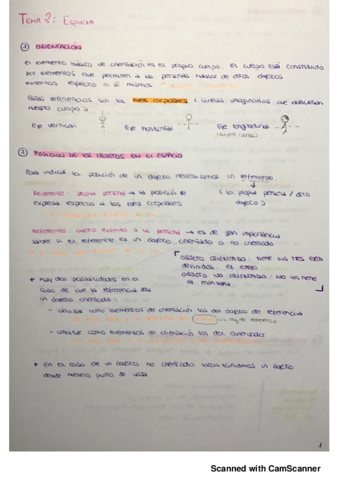 TEMA 2: Espacio
① ORIENTACIÓN
El elemento básico de orientación es el propio cuerpo. El cuerpo está constituido
por elementos que permiten a la persona hablar de otros objetos
externos respecto a sí mismos
Estas referencias son los ejes corporales (líneas imaginarias que atraviesan
nuestro cuerpo)
Eje vertical
Eje horizontal
Eje longitudinal
② POSICIÓN DE LOS OBJETOS EN EL ESPACIO
Para indicar la posición de un objeto necesitamos un referente.
(la propia persona / otro
objeto)
Referente: propia persona → la posición se
expresa respecto a los ejes corporales
Referente: objeto externo a la persona → es de gran importancia
saber si el referente es un objeto orientado o no orientado
OBJETO ORIENTADO: tiene los tres ejes
definidos.
OBJETO NO ORIENTADO: no los tiene
* Hay dos posibilidades en el
caso de que la referencia sea
un objeto orientado:
- utilizar como elementos de orientación los del objeto de referencia
- utilizar como elementos de orientación los del observador
* En el caso de un objeto no orientado localizaremos un objeto
desde nuestro punto de vista
1
Scanned with CamScanner